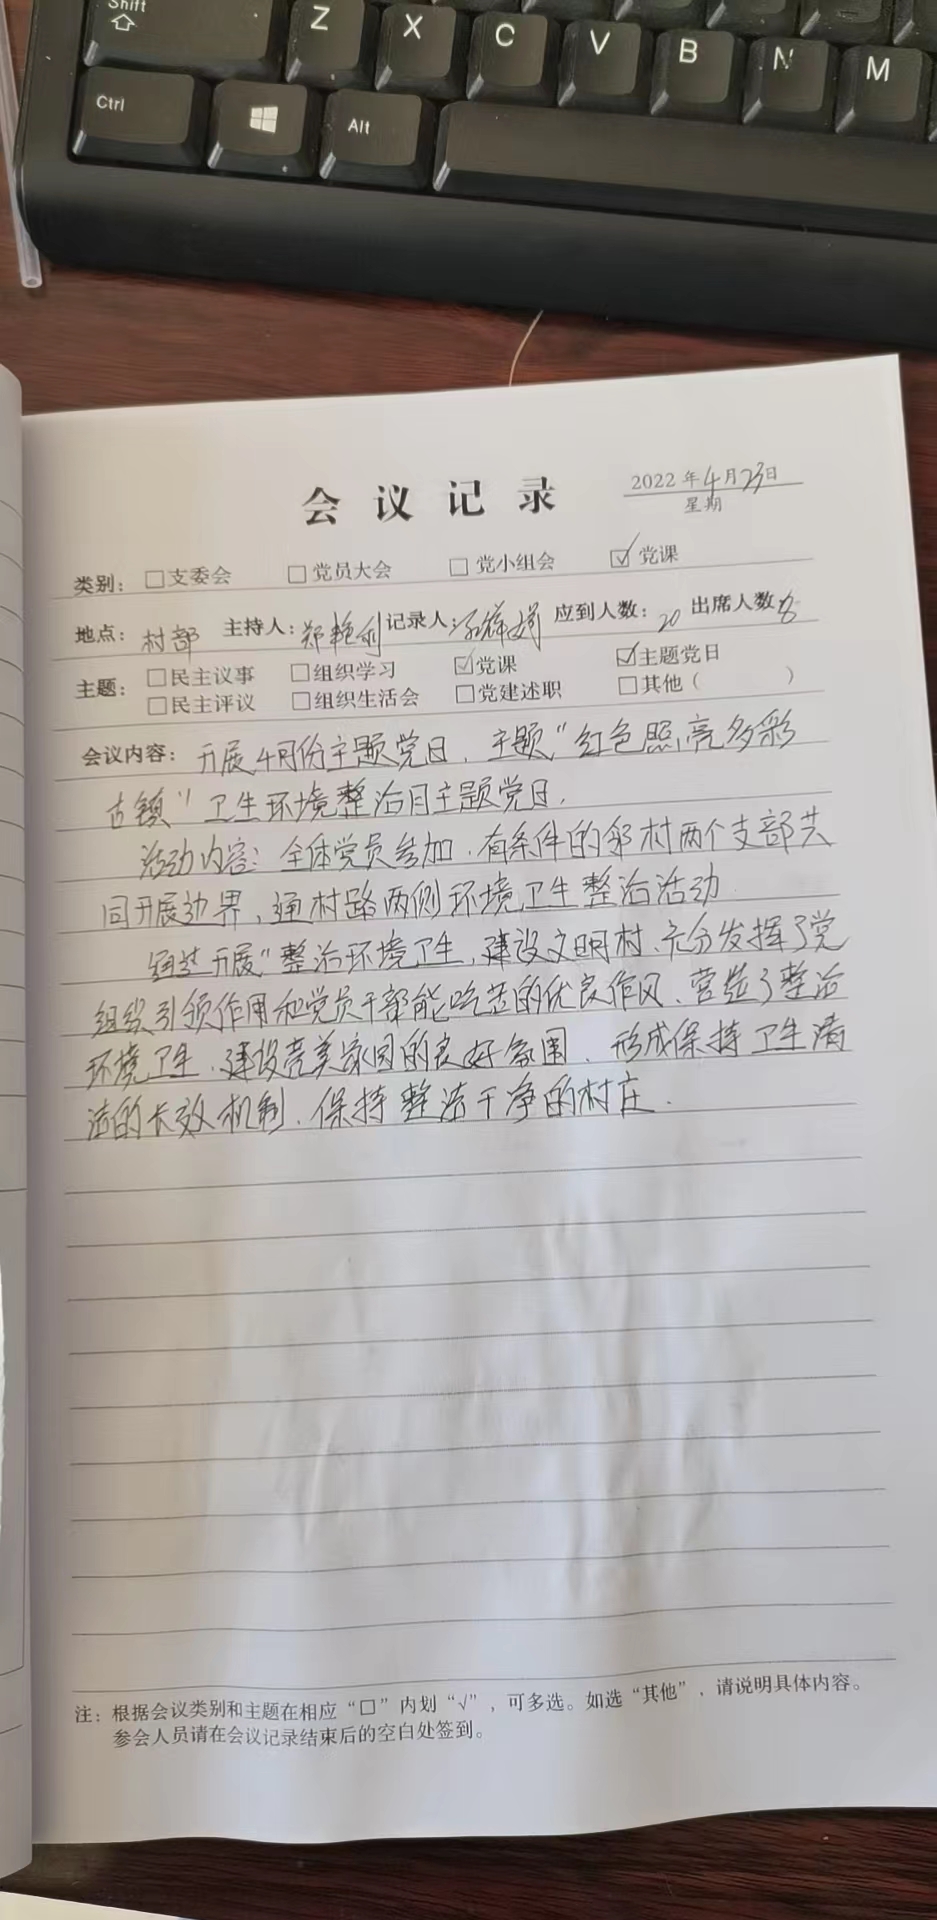 Shift
Z X C V B N M
Ctrl Alt
会议记录
2022年4月23日
星期
类别：□支委会 □党员大会 □党小组会 ☑党课
地点：村部 主持人：郑艳利 记录人： 应到人数：20 出席人数：
主题：□民主议事 □组织学习 ☑党课 ☑主题党日
□民主评议 □组织生活会 □党建述职 □其他（ ）
会议内容：开展4月份主题党日，主题“红色照亮多彩
古镇”卫生环境整治月主题党日.
活动内容：全体党员参加.有条件的邻村两个支部共
同开展边界、通村路两侧环境卫生整治活动
通过开展“整治环境卫生,建设文明村、充分发挥了党
组织引领作用和党员干部能吃苦的优良作风、营造了整治
环境卫生、建设完美家园的良好氛围、形成保持卫生清
洁的长效机制、保持整洁干净的村庄.
注：根据会议类别和主题在相应“□”内划“√”，可多选。如选“其他”，请说明具体内容。
参会人员请在会议记录结束后的空白处签到。